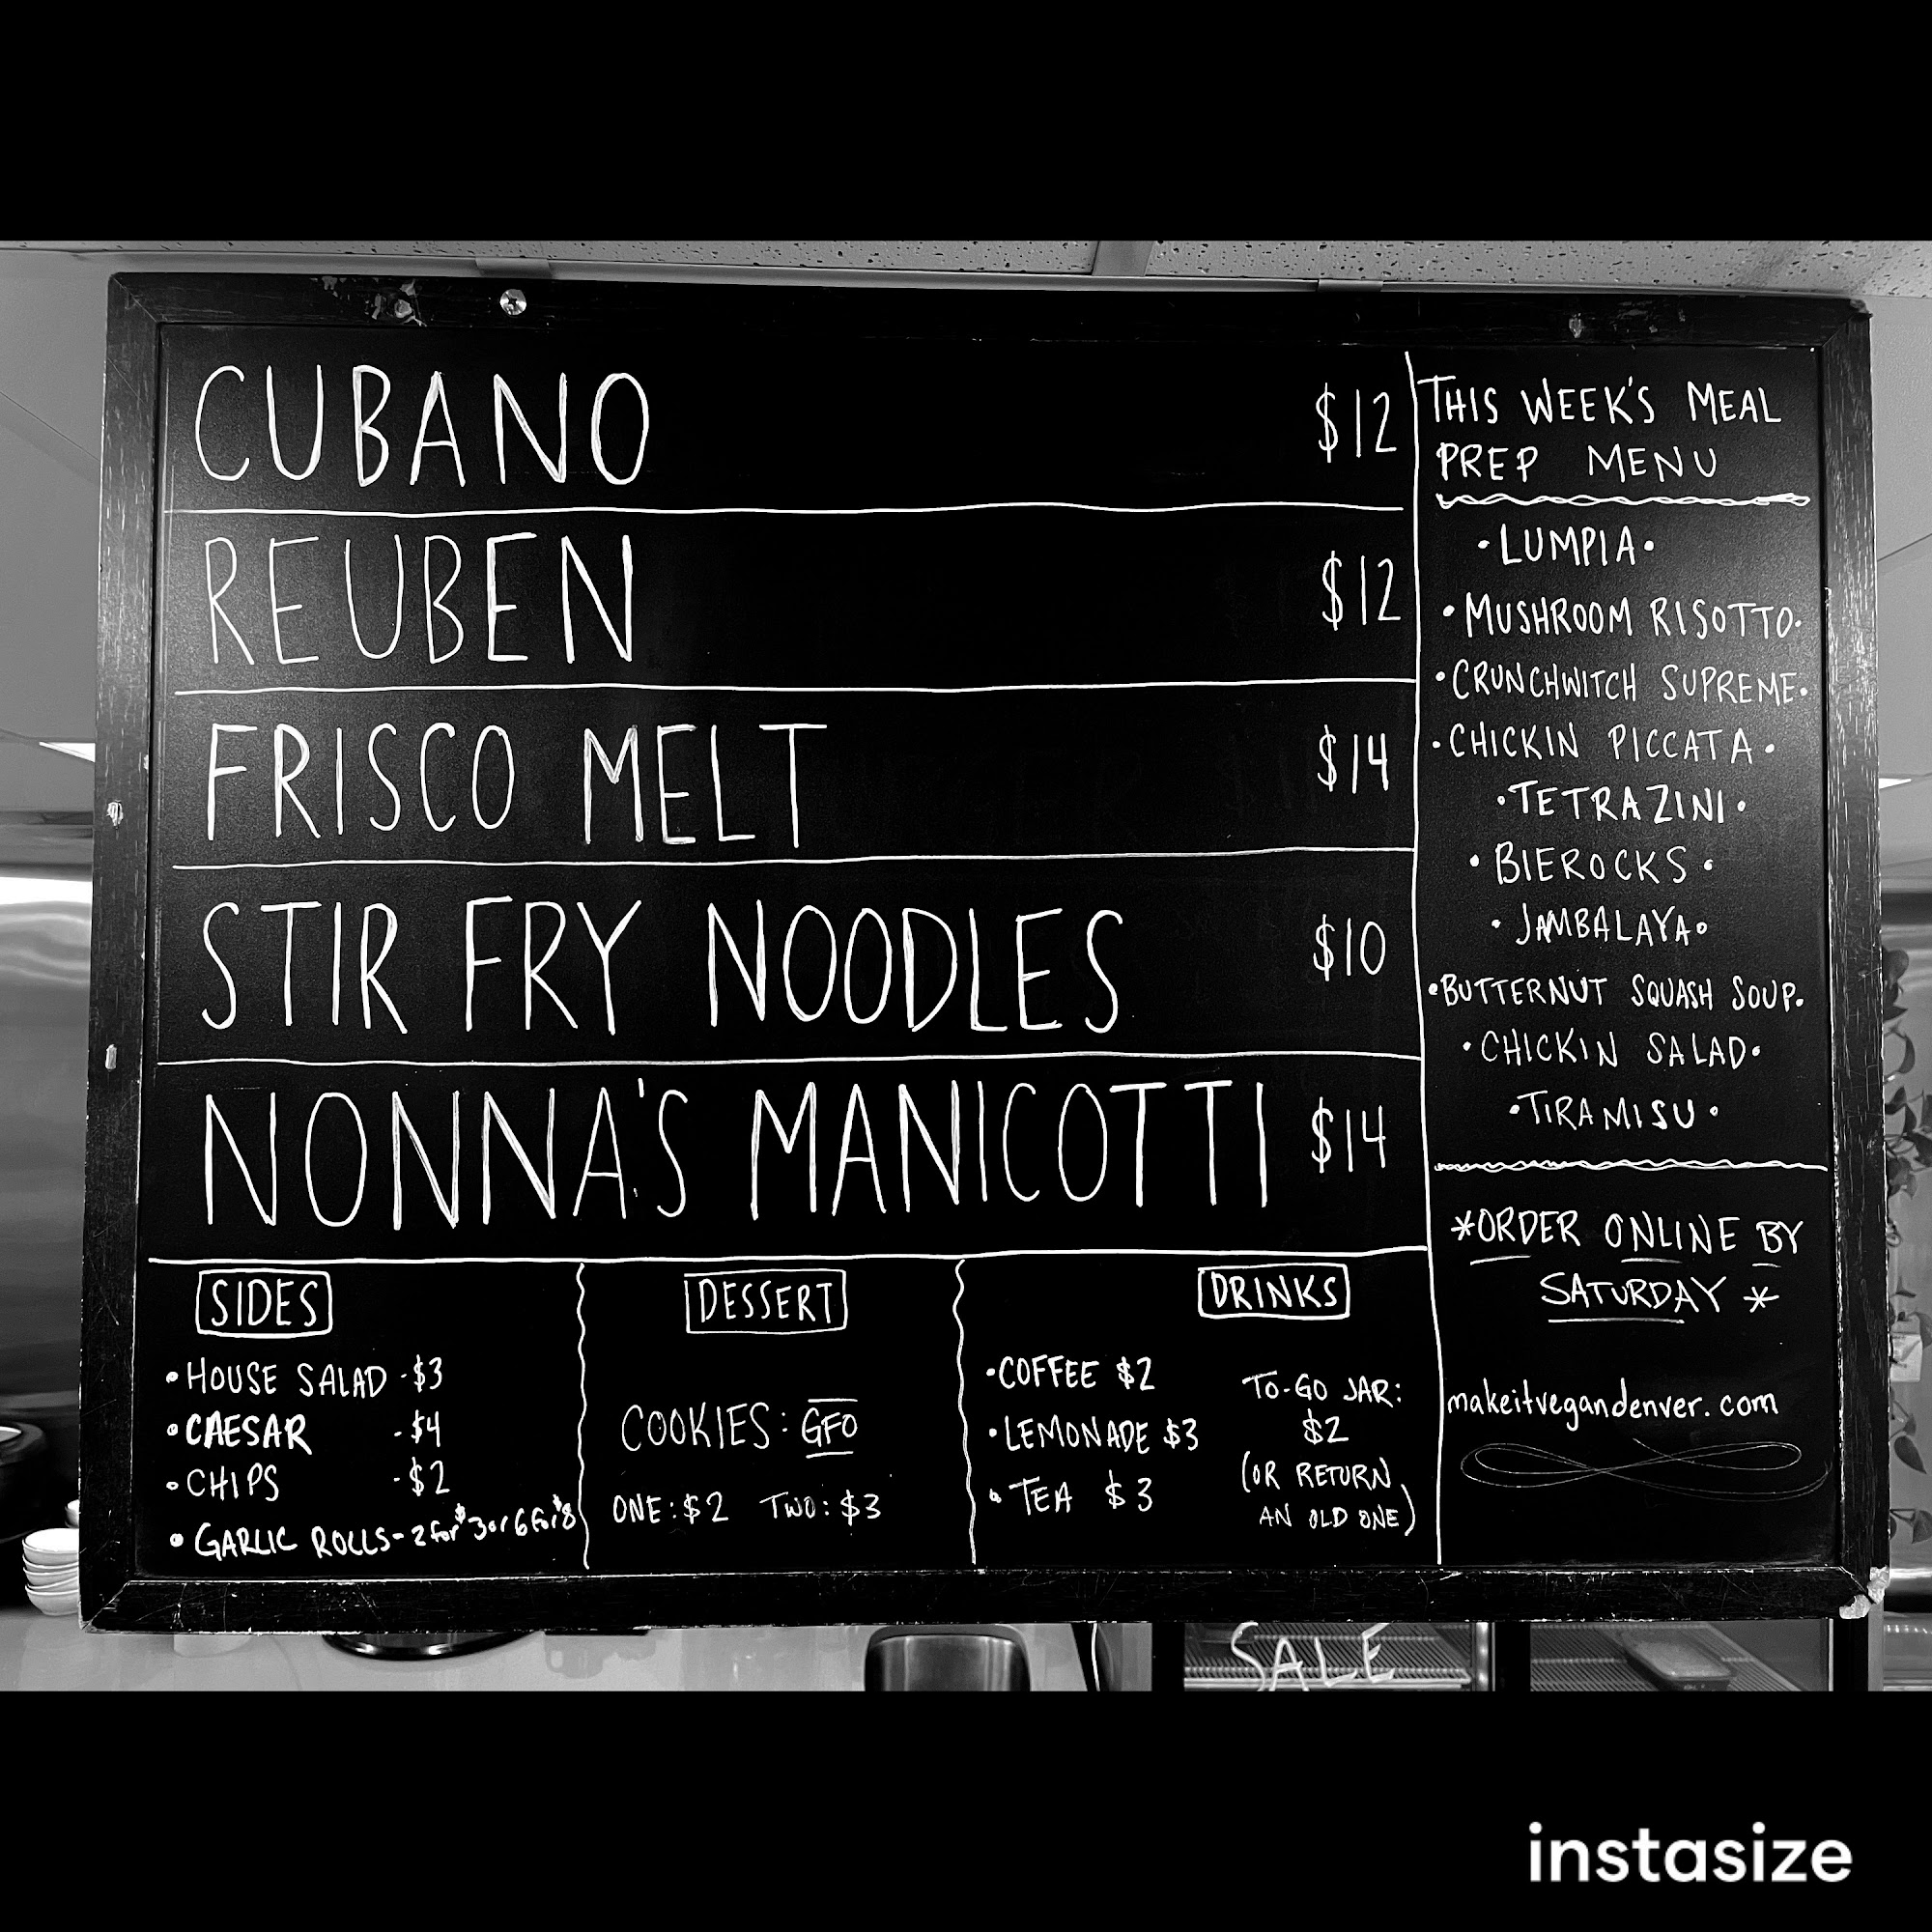 CUBANO $12
REUBEN $12
FRISCO MELT $14
STIR FRY NOODLES $10
NONNA'S MANICOTTI $14
THIS WEEK'S MEAL
PREP MENU
•LUMPIA•
•MUSHROOM RISOTTO•
•CRUNCHWITCH SUPREME•
•CHICKIN PICCATA•
•TETRAZINI•
•BIEROCKS•
•JAMBALAYA•
•BUTTERNUT SQUASH SOUP•
•CHICKIN SALAD•
•TIRAMISU•
*ORDER ONLINE BY
SATURDAY *
makeitvegandenver.com
SIDES
•HOUSE SALAD -$3
•CAESAR -$4
•CHIPS -$2
•GARLIC ROLLS-2 for $3 or 6 for $8
DESSERT
COOKIES: GFO
ONE:$2 TWO:$3
DRINKS
•COFFEE $2
•LEMONADE $3
•TEA $3
TO-GO JAR:
$2
(OR RETURN
AN OLD ONE)
SALE
instasize